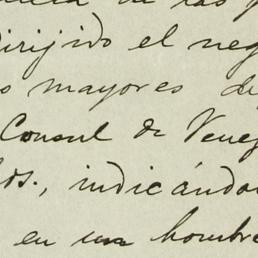 de las
dirijido el neg
s mayores de
Consul de Venez
los., indicándo
en un hombre